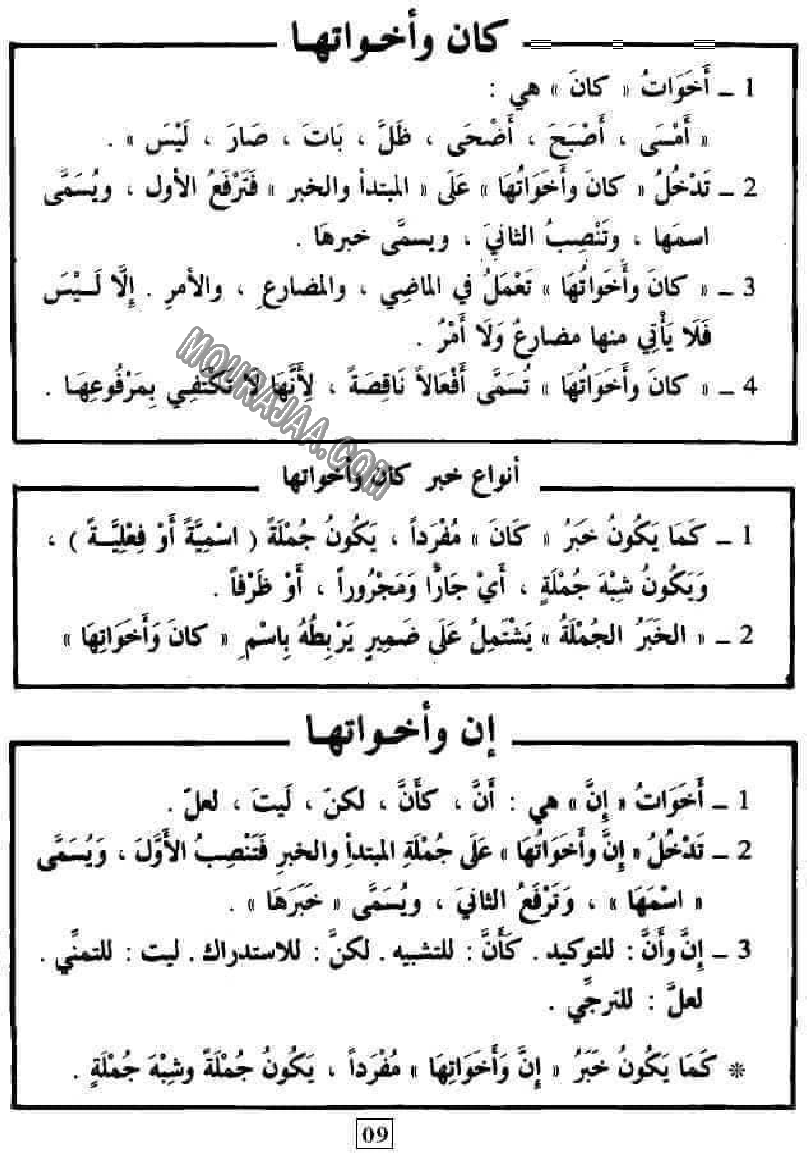 كان وأخـواتهـا
1 ــ أَخَوَاتُ « كانَ » هي :
« أَمْسَى ، أَصْبَحَ ، أَضْحَى ، ظَلَّ ، بَاتَ ، صَارَ ، لَيْسَ » .
2 ــ تَدْخُلُ « كانَ وأَخَوَاتُها » عَلَى « المبتدأ والخبر » فَتَرْفَعُ الأول ، ويُسَمَّى
اسمَها ، وتَنْصِبُ الثانيَ ، ويسمَّى خبرهَا .
3 ــ « كانَ وأَخَوَاتُهَا » تَعْمَلُ في الماضِي ، والمضارعِ ، والأمرِ . إِلَّا لَـيْسَ
فَلَا يَأْتِي منها مضارعٌ وَلَا أَمْرٌ .
4 ــ « كانَ وأَخَوَاتُهَا » تُسَمَّى أَفْعَالاً نَاقِصَةً ، لِأَنَّهَا لَا تَكْتَفِـي بِمَرْفُوعِهَـا .
MOURAJAA.COM
أنواع خبر كان وأخواتها
1 ــ كَمَا يَكُونُ خَبَرُ « كَانَ » مُفْرَداً ، يَكُونُ جُمْلَةً ( اسْمِيَّةً أَوْ فِعْلِيَّـةً ) ،
وَيَكُونُ شِبْهَ جُمْلَةٍ ، أَيْ جَارًّا وَمَجْرُوراً ، أَوْ ظَرْفاً .
2 ــ « الخَبَرُ الجُمْلَةُ » يَشْتَمِلُ عَلَى ضَمِيرٍ يَرْبِطُهُ بِاسْمِ « كانَ وَأَخَوَاتِهَا »
إن وأخـواتهـا
1 ــ أَخَوَاتُ « إِنَّ » هي : أَنَّ ، كأَنَّ ، لكنّ ، لَيتَ ، لعلّ .
2 ــ تَدْخُلُ « إِنَّ وأَخَوَاتُهَا » عَلَى جُمْلَةِ المبتدأِ والخبرِ فَتَنْصِبُ الأَوَّلَ ، وَيُسَمَّى
« اسْمَهَا » ، وَتَرْفَعُ الثانيَ ، ويُسَمَّى « خَبَرَهَا » .
3 ــ إِنَّ وأَنَّ : للتوكيد . كَأَنَّ : للتشبيه . لكنَّ : للاستدراك . ليت : للتمنِّي .
لعلَّ : للترجِّي .
* كَمَا يَكُونُ خَبَرُ « إِنَّ وَأَخَوَاتِهَا » مُفْرَداً ، يَكُونُ جُمْلَةً وشِبْهَ جُمْلَةٍ .
09